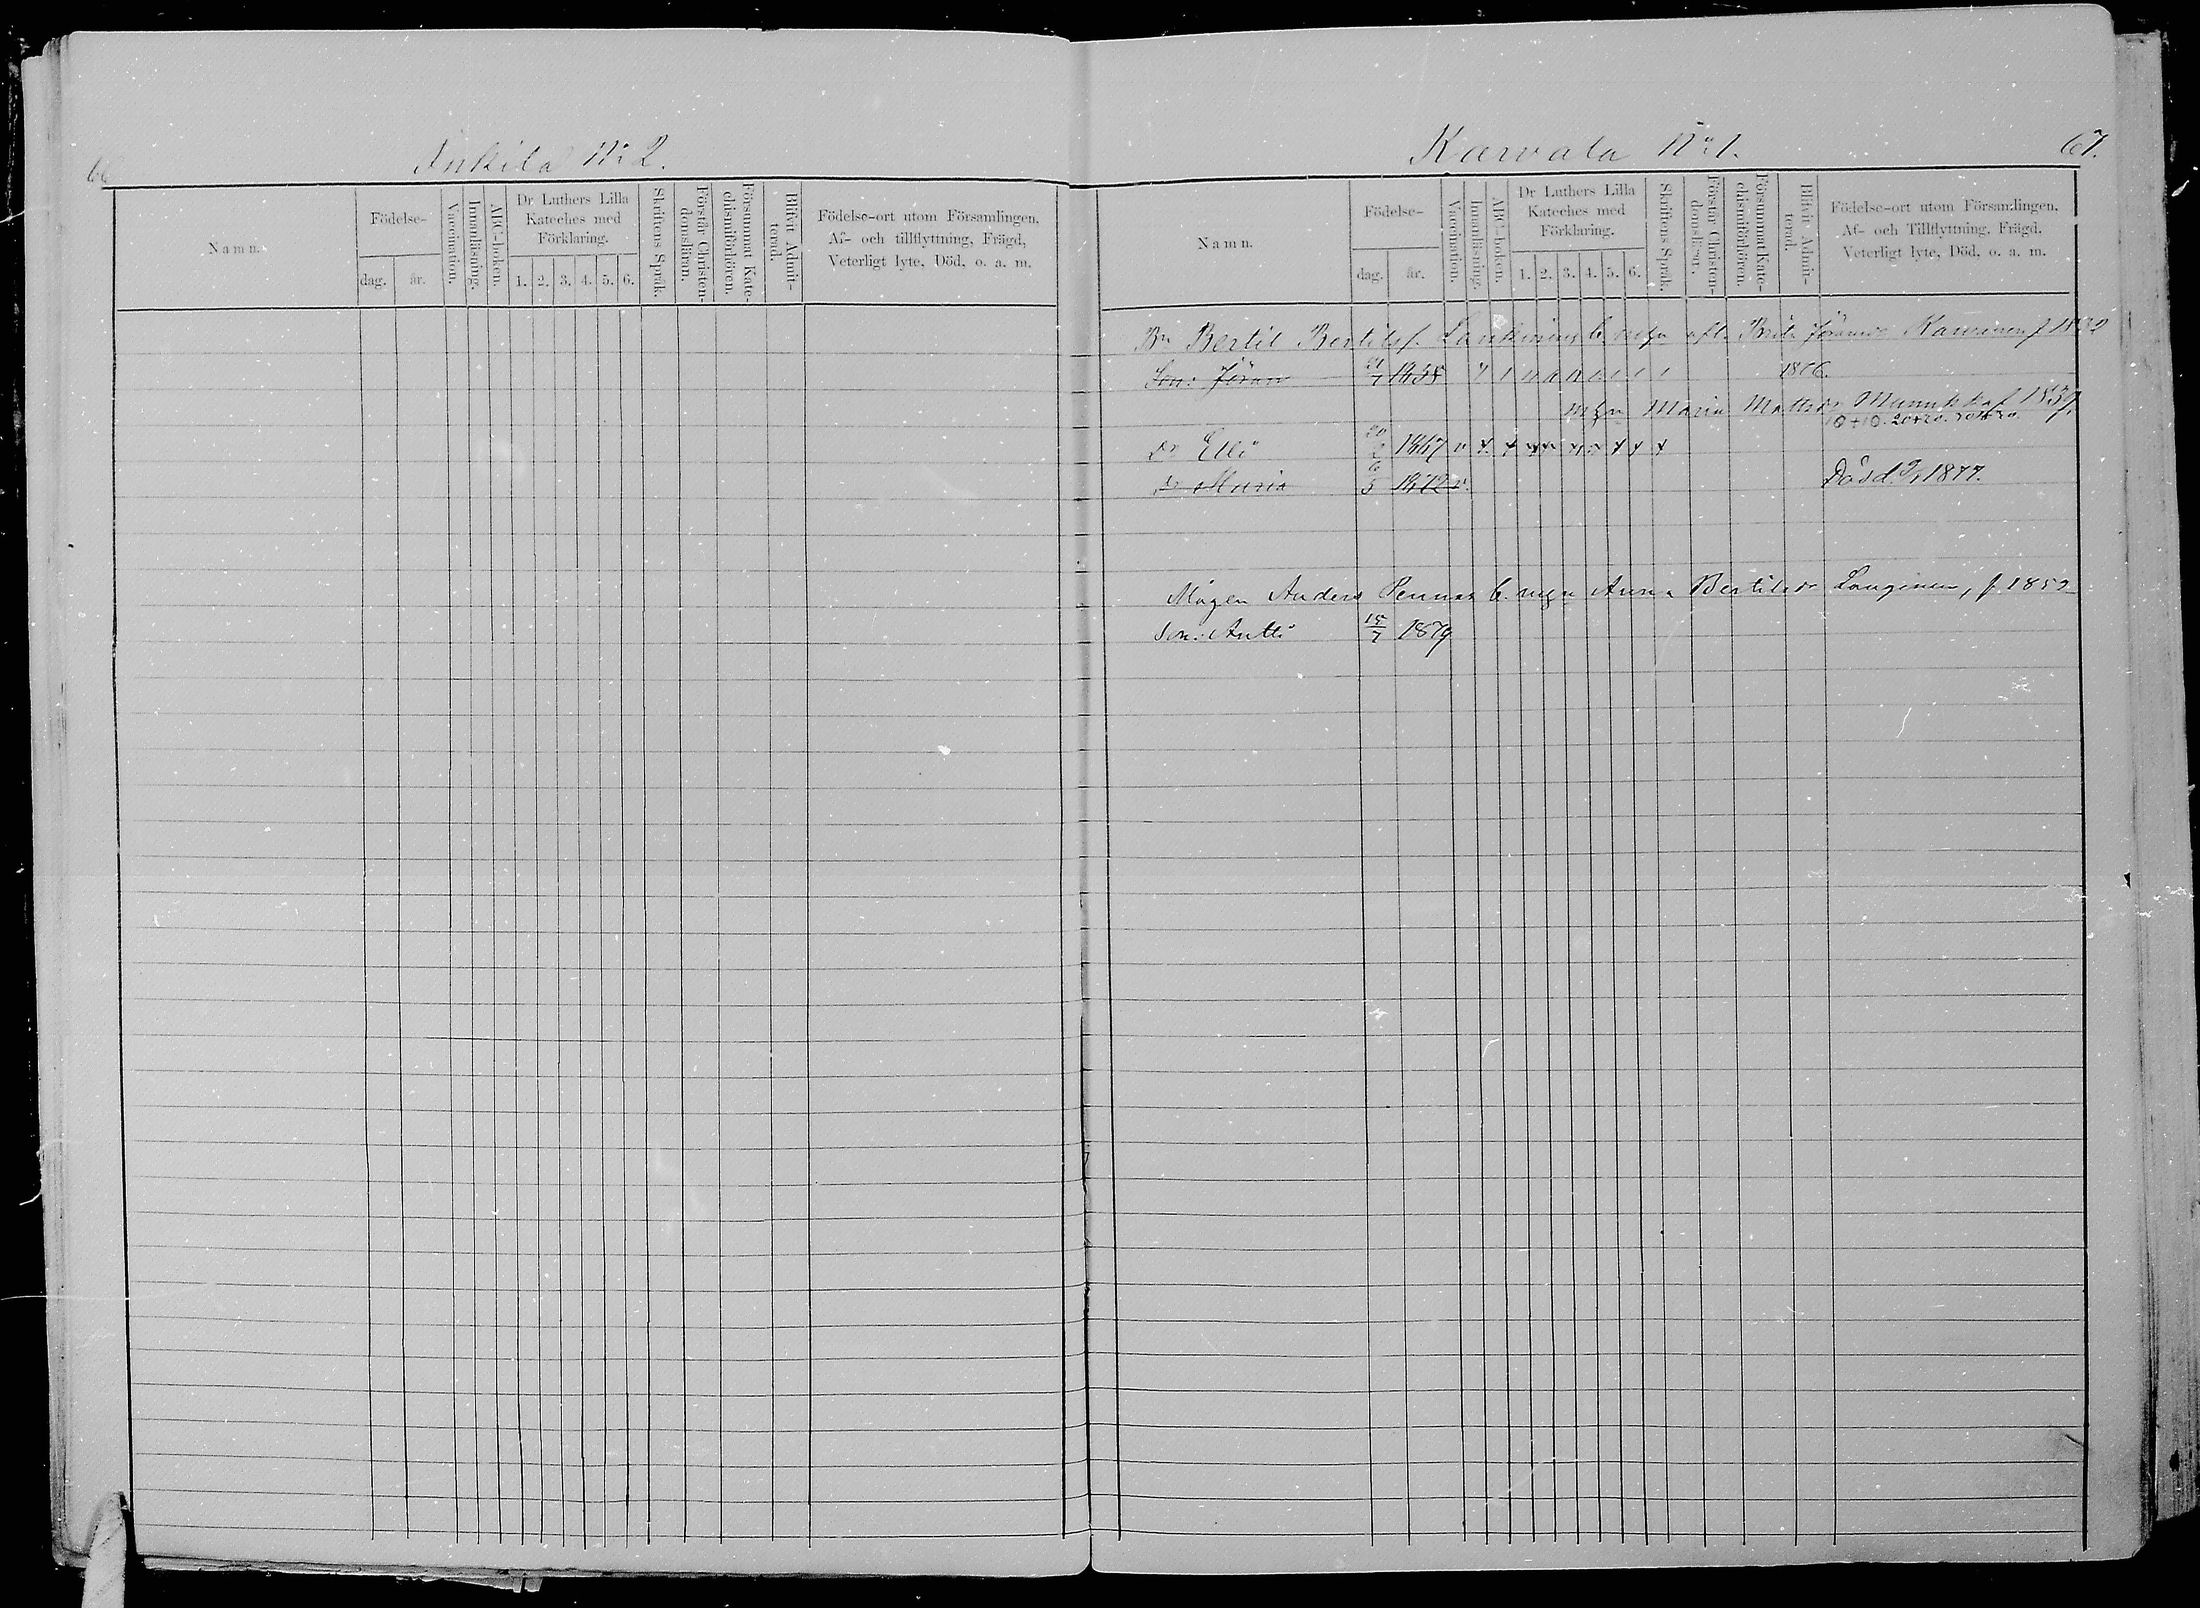 66
Inkilä No 2.
Namn.
Födelse-
dag.
år.
Vaccination.
Innanläsning.
ABC-boken.
Dr Luthers Lilla
Kateches med
Förklaring.
1. 2. 3. 4. 5. 6.
Skriftens Språk.
Förstår Christen-
domsläran.
Försummat Kate-
chismiförhören.
Blifvit Admit-
terad.
Födelse-ort utom Församlingen,
Af- och tillflyttning, Frägd,
Veterligt lyte, Död, o. a. m.
Karvala No 1.
67.
Namn.
Födelse-
dag.
år.
Vaccination.
Innanläsning.
ABC-boken.
Dr Luthers Lilla
Kateches med
Förklaring.
1. 2. 3. 4. 5. 6.
Skriftens Språk.
Förstår Christen-
domsläran.
Försummat Kate-
chismiförhören.
Blifvit Admit-
terad.
Födelse-ort utom Församlingen,
Af- och Tillflyttning, Frägd,
Veterligt lyte, Död, o. a. m.
Bertil Bertilsf. Brita Jöransdr f 1832
Son: Jöran 1858 1876.
Maria Mattsdr f 1839.
10+10. 20+20.
Dr Elli 20/2 1867 v
Dr Maria 6/3 1872 v. Död 1877.
Mågen Anders Pennas b. mgn Anna Bertilsdr Lauginen, f. 1852
Son: Antti 15/7 1879